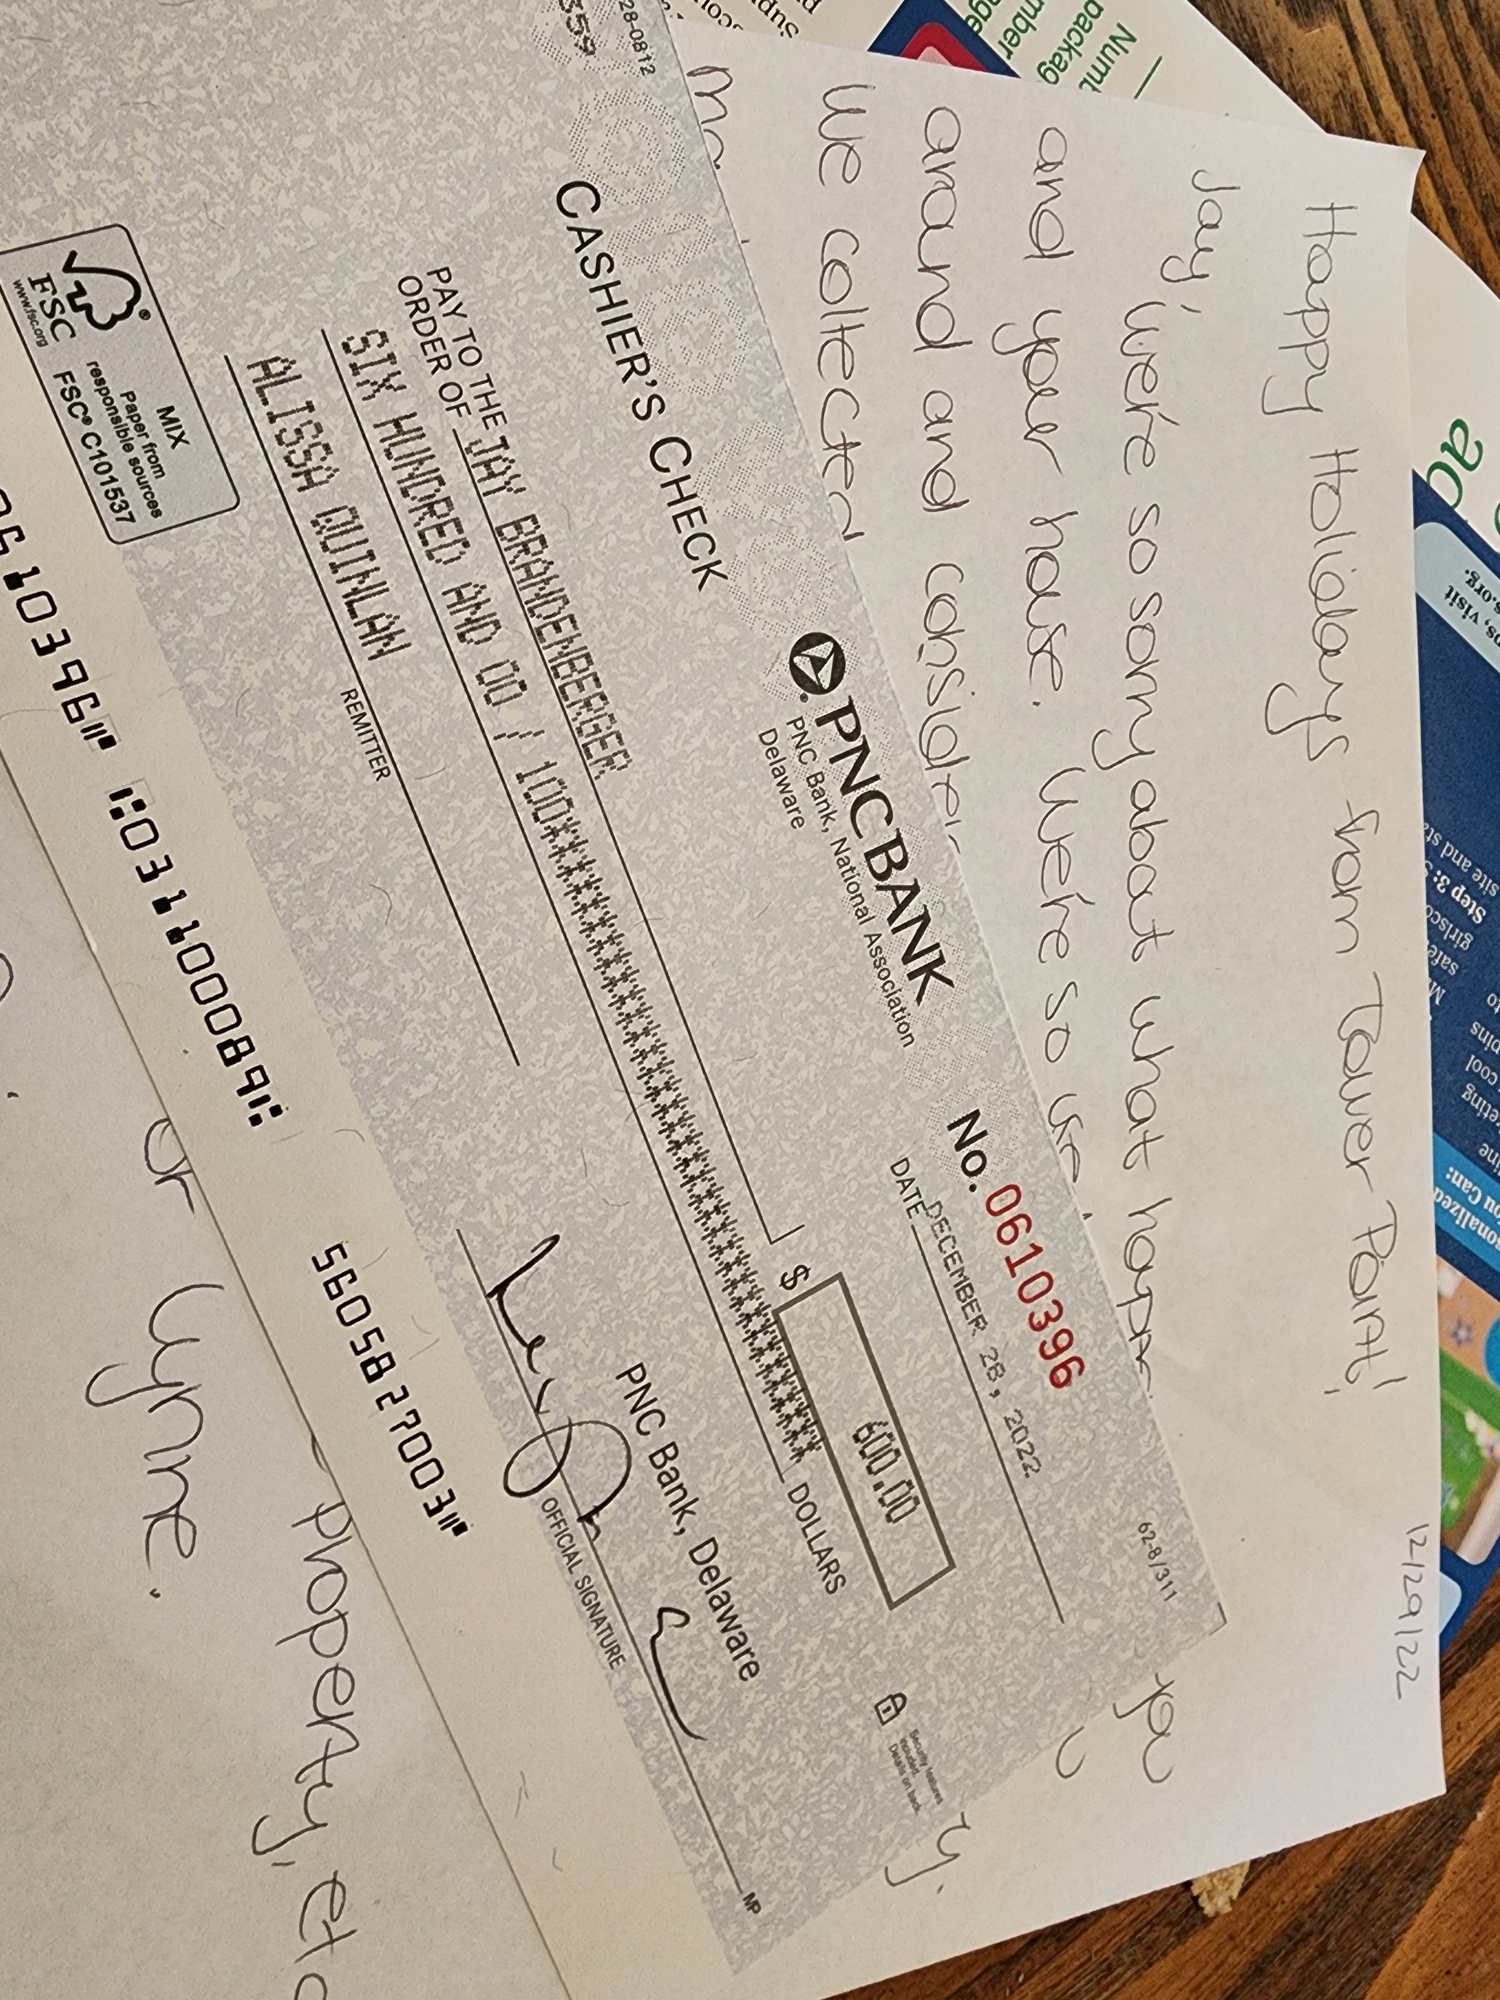 Happy Holidays from Tower Point!
12/29/22
Jay,
We're so sorry about what
you
and your house. We're so
around and
We collected
CASHIER'S CHECK
PNC BANK
PNC Bank, National Association
Delaware
No. 0610396
62-8/311
DATE DECEMBER 28, 2022
PAY TO THE
ORDER OF JAY BRANDENBERGER
$ 600.00
SIX HUNDRED AND 00 / 100 DOLLARS
ALISSA QUINLAN
REMITTER
PNC Bank, Delaware
OFFICIAL SIGNATURE
MP
Security features
included.
Details on back.
28-0812
359
FSC
www.fsc.org
MIX
Paper from
responsible sources
FSC® C101537
0610396 031100089 5605827003
property,
or Lynne.
Step 3:
site and
visit
to
pins
cool
You Can: